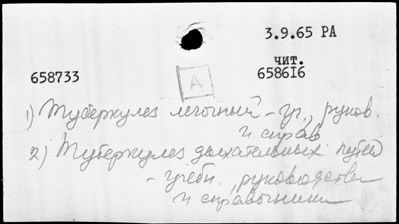 3.9.65 РА
чит.
658733
658616
А
1) Туберкулез легочный - уч., руков.
и справ
2) Туберкулез дыхательных путей
- учебн., руководства
и справочники